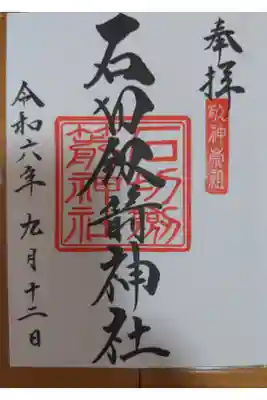 奉拝
敬神崇祖
石切劔箭神社
石切劔箭神社
令和六年九月十二日